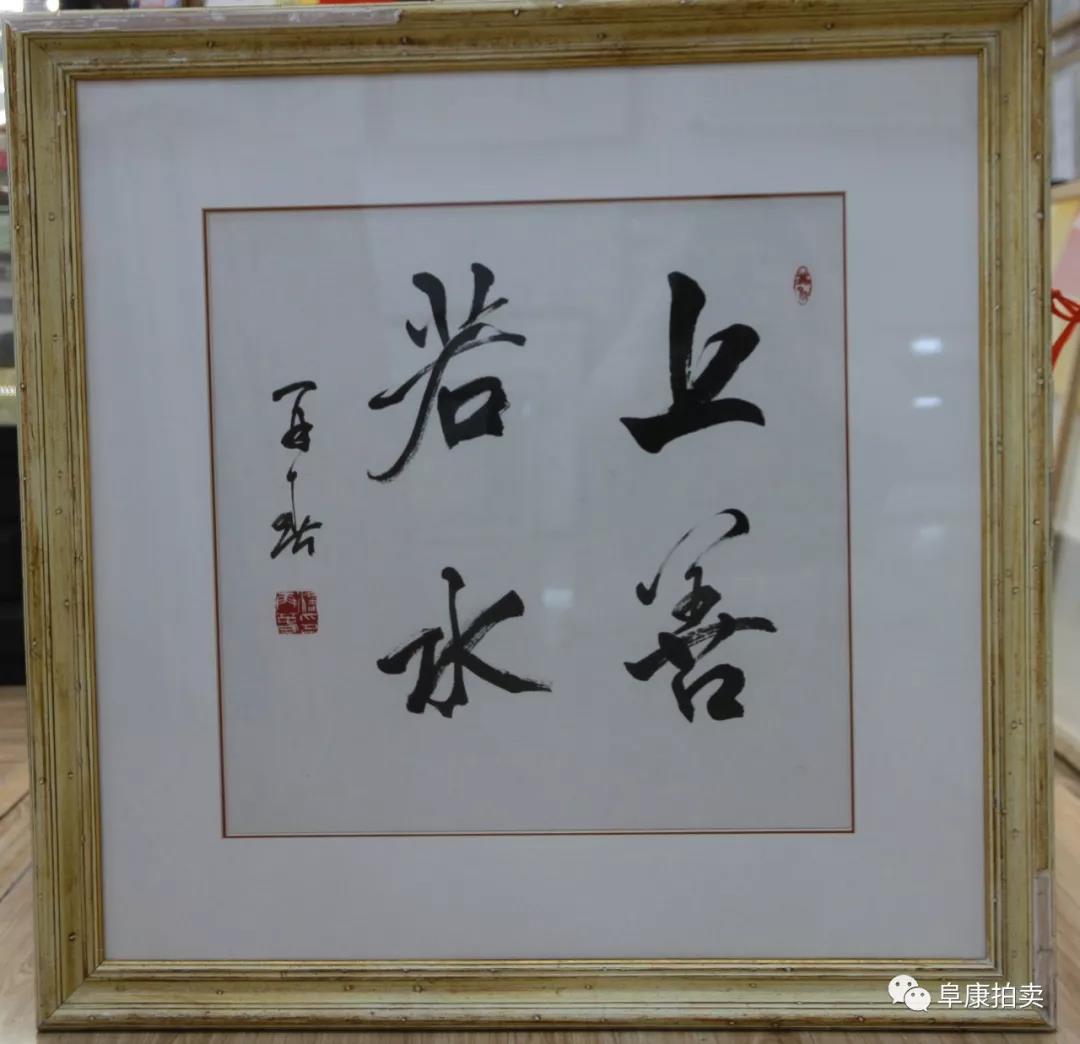 上善
若水
阜康拍卖